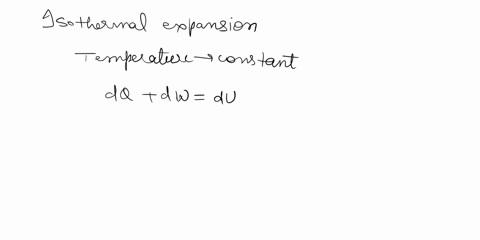 Isothermal expansion
Temperature → constant
dQ + dW = dU